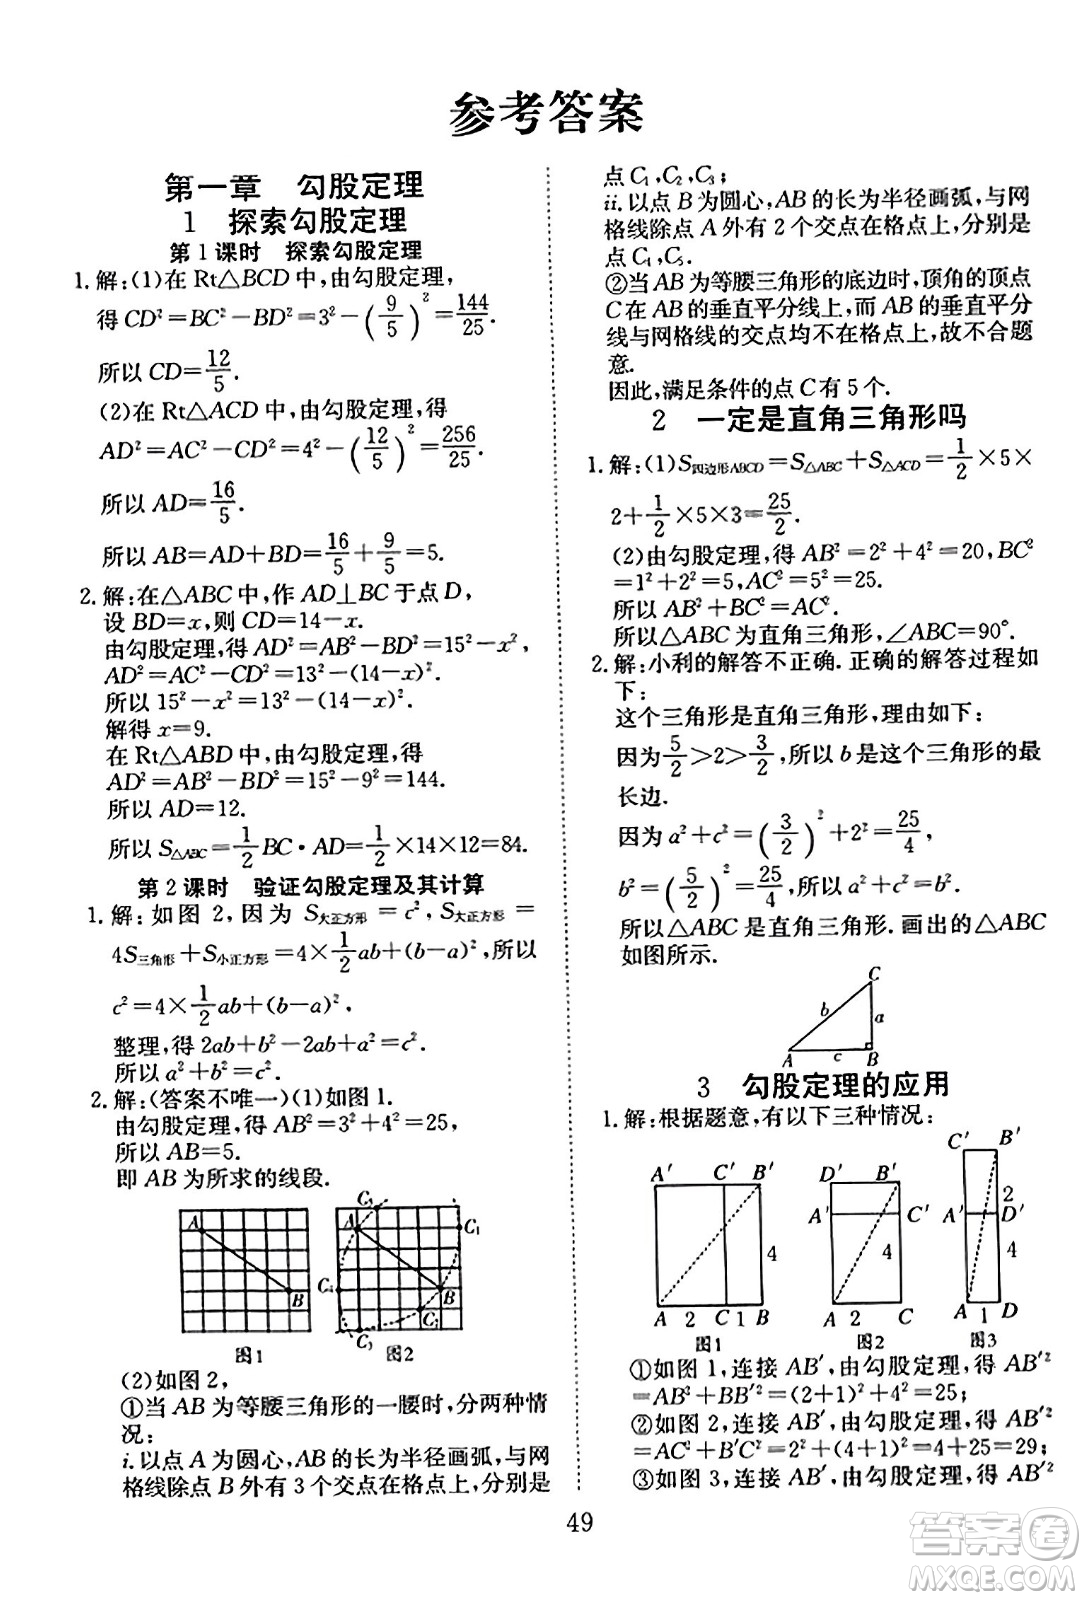 参考答案
第一章 勾股定理
1 探索勾股定理
第1课时 探索勾股定理
1.解:(1)在 Rt△BCD 中,由勾股定理,
得 CD²=BC²－BD²=3²－(9/5)²=144/25.
所以 CD=12/5.
(2)在 Rt△ACD 中,由勾股定理,得
AD²=AC²－CD²=4²－(12/5)²=256/25.
所以 AD=16/5.
所以 AB=AD+BD=16/5+9/5=5.
2.解:在△ABC 中,作 AD⊥BC 于点 D,
设 BD=x,则 CD=14－x.
由勾股定理,得 AD²=AB²－BD²=15²－x²,
AD²=AC²－CD²=13²－(14－x)².
所以 15²－x²=13²－(14－x)².
解得 x=9.
在 Rt△ABD 中,由勾股定理,得
AD²=AB²－BD²=15²－9²=144.
所以 AD=12.
所以 S△ABC=1/2BC·AD=1/2×14×12=84.
第2课时 验证勾股定理及其计算
1.解:如图 2,因为 S大正方形=c²,S大正方形=
4S三角形+S小正方形=4×1/2ab+(b－a)²,所以
c²=4×1/2ab+(b－a)².
整理,得 2ab+b²－2ab+a²=c².
所以 a²+b²=c².
2.解:(答案不唯一)(1)如图 1.
由勾股定理,得 AB²=3²+4²,
所以 AB=5.
即 AB 为所求的线段.
A
B
图1
C₃
A
C₁
C₄
B
C₂
C₅
图2
(2)如图 2,
①当 AB 为等腰三角形的一腰时,分两种情
况:
i.以点 A 为圆心,AB 的长为半径画弧,与网
格线除点 B 外有 3 个交点在格点上,分别是
点 C₁,C₂,C₃;
ii.以点 B 为圆心,AB 的长为半径画弧,与网
格线除点 A 外有 2 个交点在格点上,分别是
点 C₄,C₅.
②当 AB 为等腰三角形的底边时,顶角的顶点
C 在 AB 的垂直平分线上,而 AB 的垂直平分
线与网格线的交点均不在格点上,故不合题
意.
因此,满足条件的点 C 有 5 个.
2 一定是直角三角形吗
1.解:(1)S四边形ABCD=S△ABC+S△ACD=1/2×5×
2+1/2×5×3=25/2.
(2)由勾股定理,得 AB²=2²+4²=20,BC²
=1²+2²=5,AC²=5²=25.
所以 AB²+BC²=AC².
所以△ABC 为直角三角形,∠ABC=90°.
2.解:小利的解答不正确.正确的解答过程如
下:
这个三角形是直角三角形,理由如下:
因为5/2>2>3/2,所以 b 是这个三角形的最
长边.
因为 a²+c²=(3/2)²+2²=25/4,
b²=(5/2)²=25/4,所以 a²+c²=b².
所以△ABC 是直角三角形.画出的△ABC
如图所示.
C
b
a
A
c
B
3 勾股定理的应用
1.解:根据题意,有以下三种情况:
A′ C′ B′
4
A 2 C 1 B
图1
D′ B′
A′ C′
4
A 2 C
图2
C′ B′
2
A′ D′
4
A 1 D
图3
①如图 1,连接 AB′,由勾股定理,得 AB′²
=AB²+BB′²=(2+1)²+4²=25;
②如图 2,连接 AB′,由勾股定理,得 AB′²
=AC²+B′C²=2²+(4+1)²=4+25=29;
③如图 3,连接 AB′,由勾股定理,得 AB′²
49
答案卷
MXQE.COM